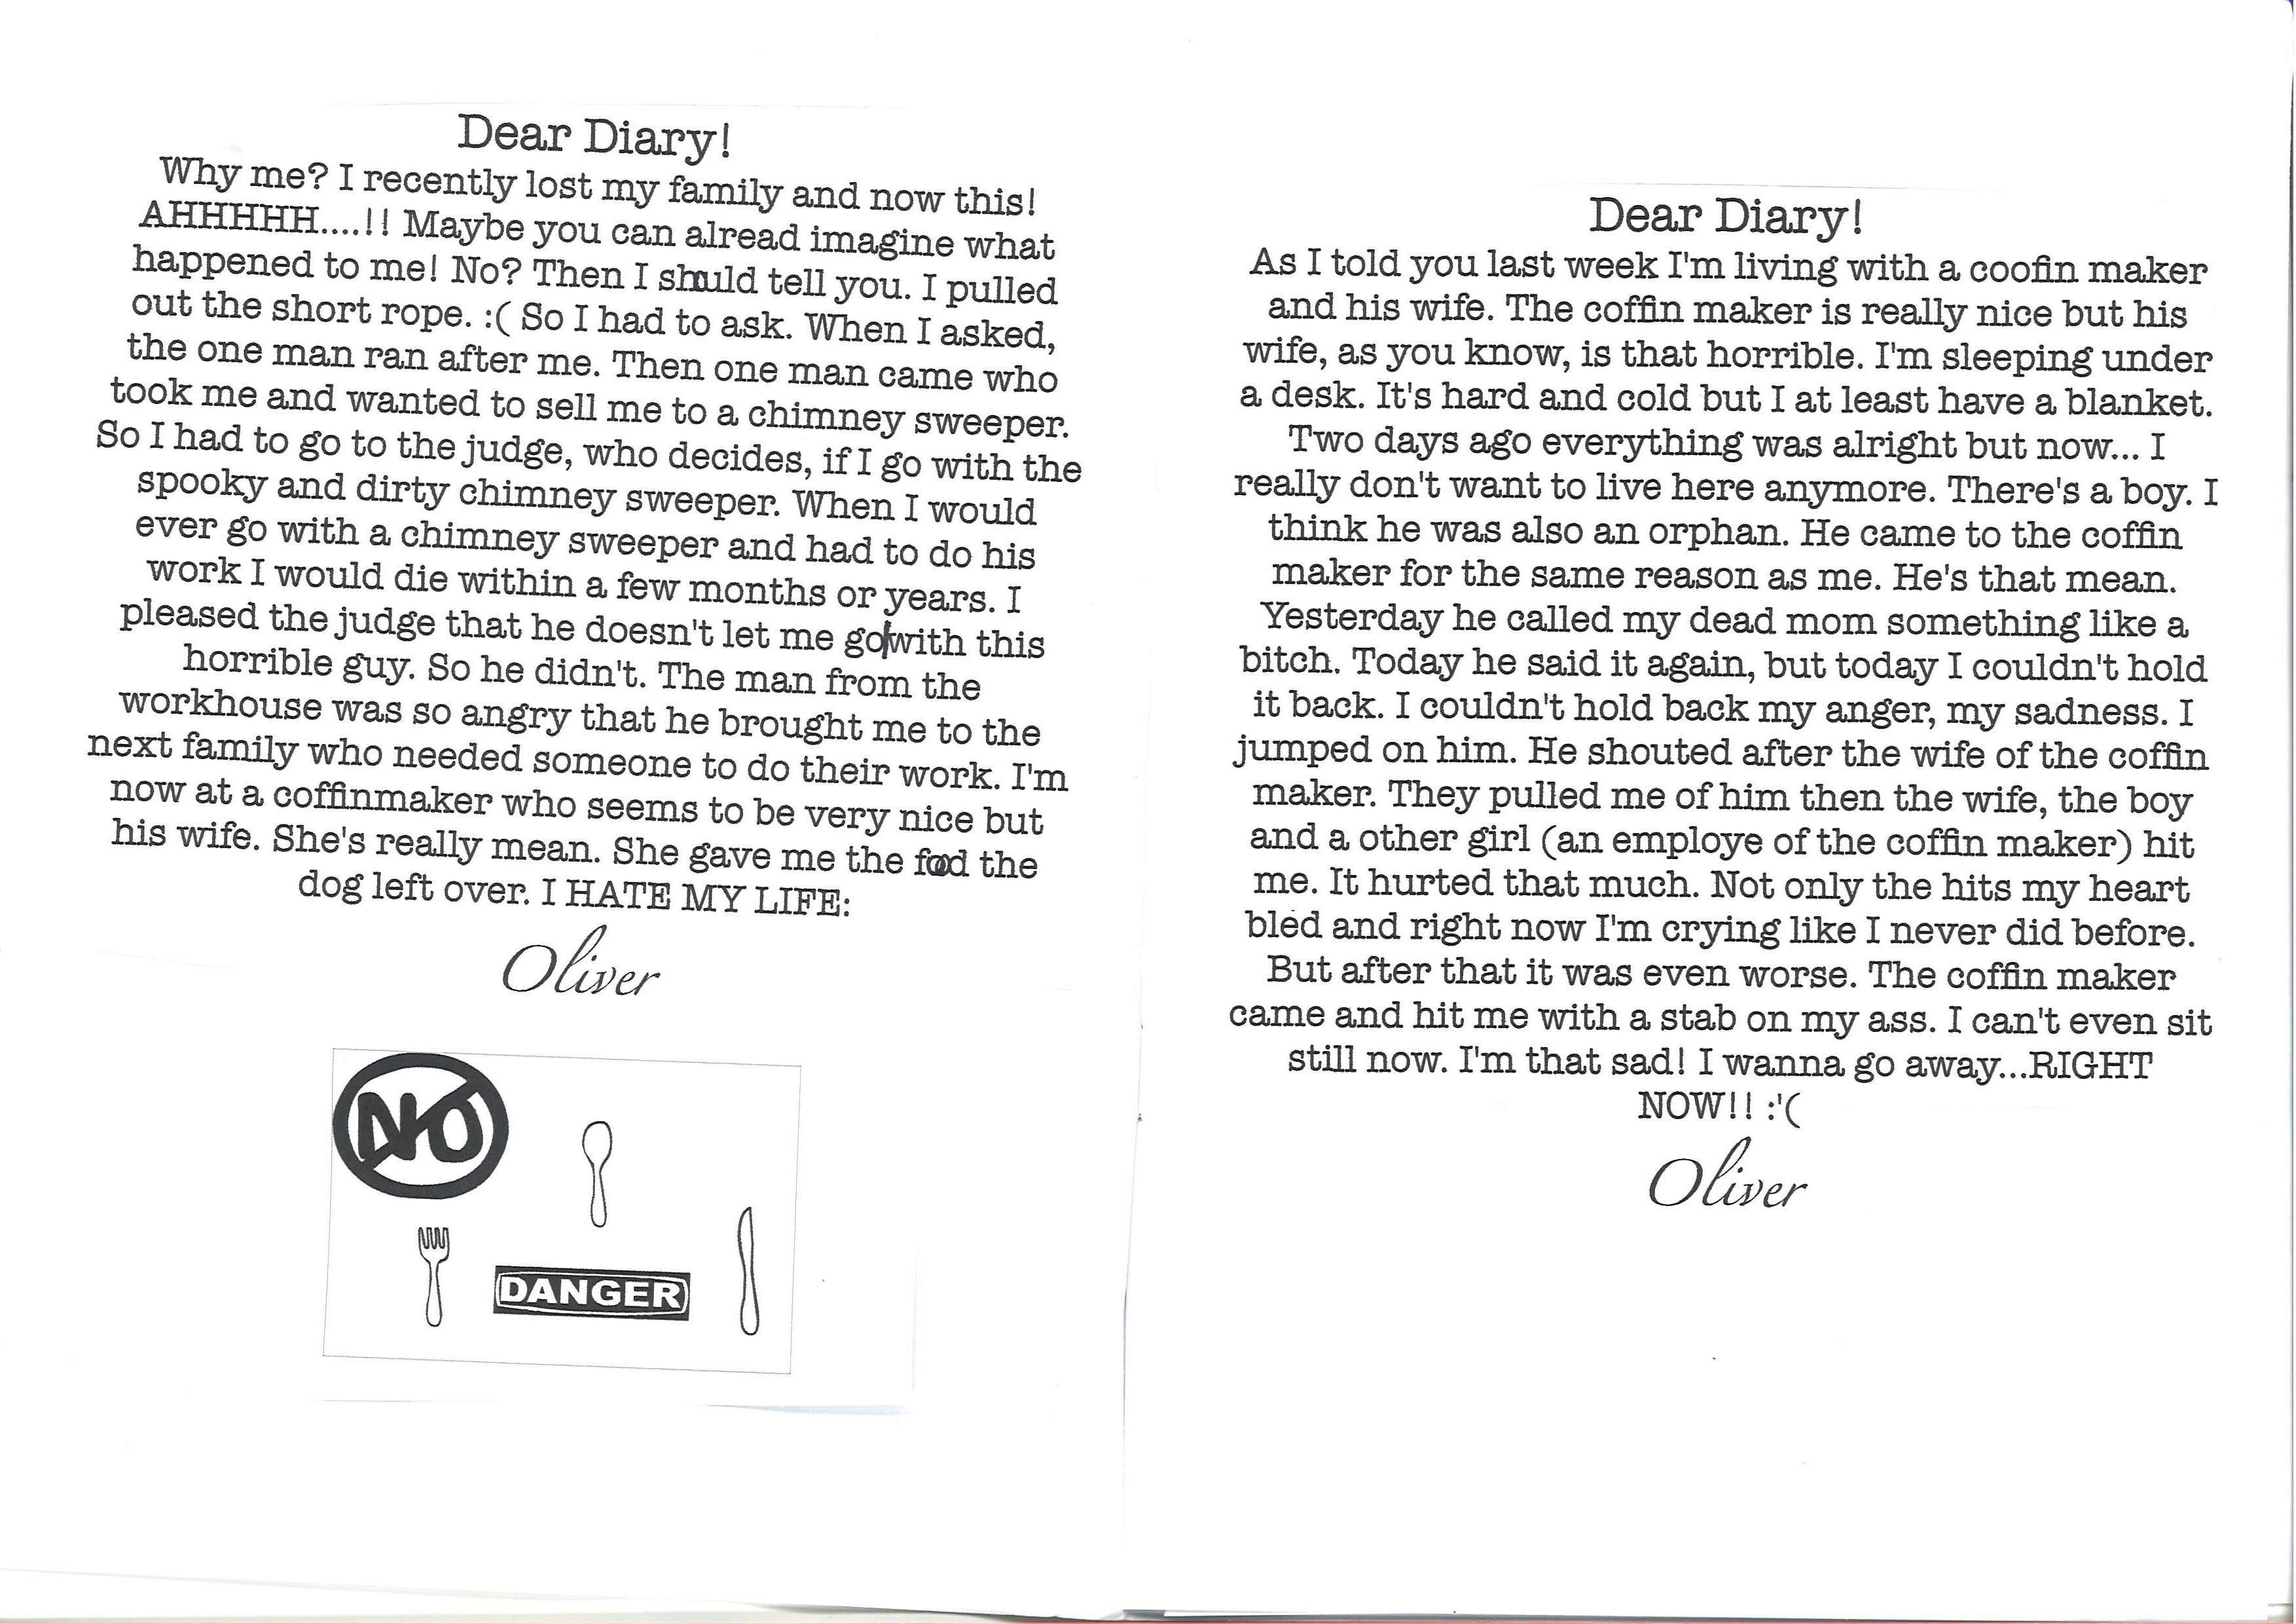 Dear Diary!
Why me? I recently lost my family and now this!
AHHHHH....!! Maybe you can alread imagine what
happened to me! No? Then I shuld tell you. I pulled
out the short rope. :( So I had to ask. When I asked,
the one man ran after me. Then one man came who
took me and wanted to sell me to a chimney sweeper.
So I had to go to the judge, who decides, if I go with the
spooky and dirty chimney sweeper. When I would
ever go with a chimney sweeper and had to do his
work I would die within a few months or years. I
pleased the judge that he doesn't let me go|with this
horrible guy. So he didn't. The man from the
workhouse was so angry that he brought me to the
next family who needed someone to do their work. I'm
now at a coffinmaker who seems to be very nice but
his wife. She's really mean. She gave me the food the
dog left over. I HATE MY LIFE:
Oliver
NO
DANGER
Dear Diary!
As I told you last week I'm living with a coofin maker
and his wife. The coffin maker is really nice but his
wife, as you know, is that horrible. I'm sleeping under
a desk. It's hard and cold but I at least have a blanket.
Two days ago everything was alright but now... I
really don't want to live here anymore. There's a boy. I
think he was also an orphan. He came to the coffin
maker for the same reason as me. He's that mean.
Yesterday he called my dead mom something like a
bitch. Today he said it again, but today I couldn't hold
it back. I couldn't hold back my anger, my sadness. I
jumped on him. He shouted after the wife of the coffin
maker. They pulled me of him then the wife, the boy
and a other girl (an employe of the coffin maker) hit
me. It hurted that much. Not only the hits my heart
bled and right now I'm crying like I never did before.
But after that it was even worse. The coffin maker
came and hit me with a stab on my ass. I can't even sit
still now. I'm that sad! I wanna go away...RIGHT
NOW!! :'(
Oliver